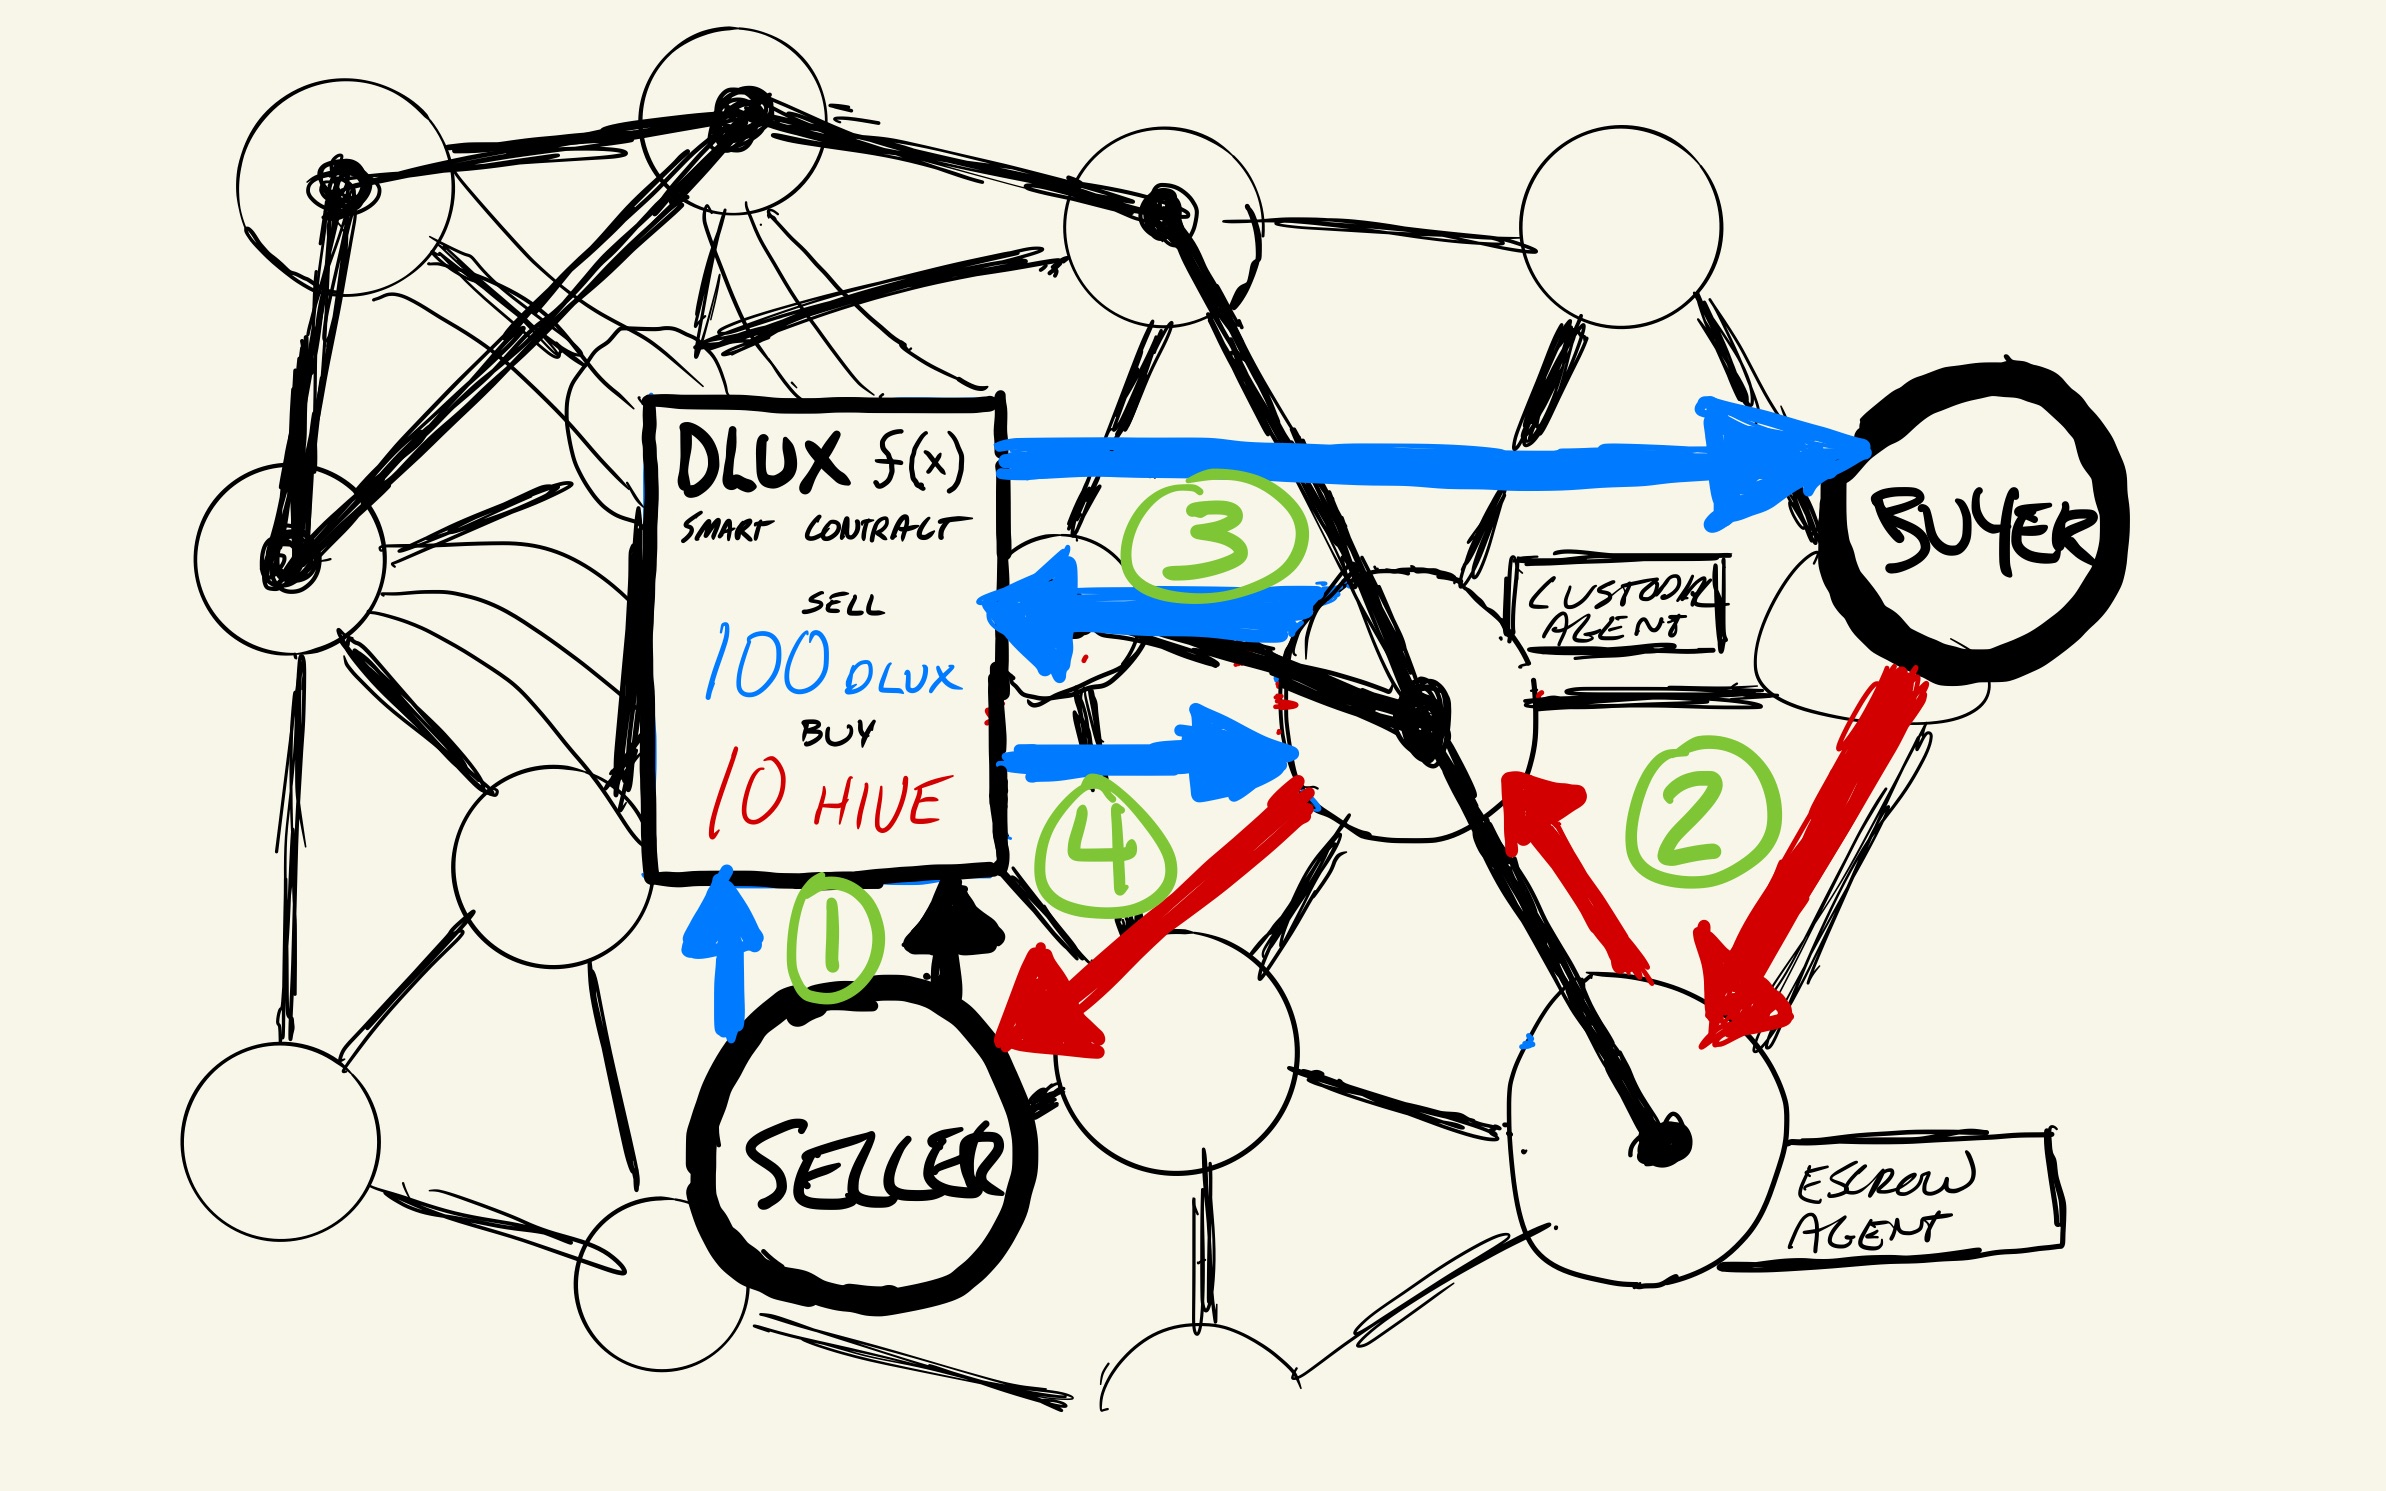 DLUX f(x)
SMART CONTRACT
SELL
100 DLUX
BUY
10 HIVE
3
BUYER
CUSTODY
AGENT
2
4
1
SELLER
ESCROW
AGENT